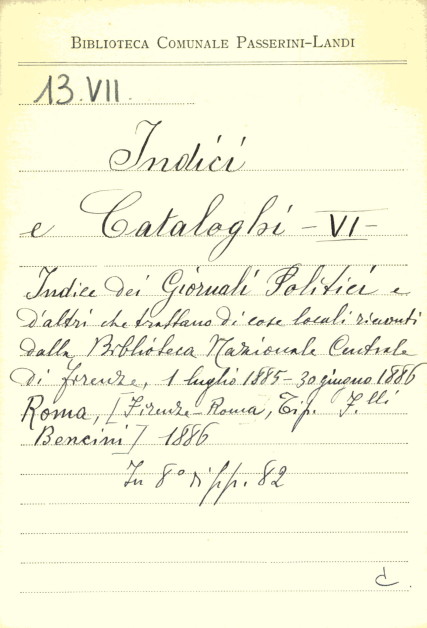 BIBLIOTECA COMUNALE PASSERINI-LANDI
13.VII.
Indici
e Cataloghi - VI -
Indice dei Giornali Politici e
d'altri che trattano di cose locali ricevuti
dalla Biblioteca Nazionale Centrale
di Firenze, 1 luglio 1885-30 giugno 1886
Roma, [Firenze-Roma, Tip. F.lli
Bencini] 1886
In 8° di pp. 82